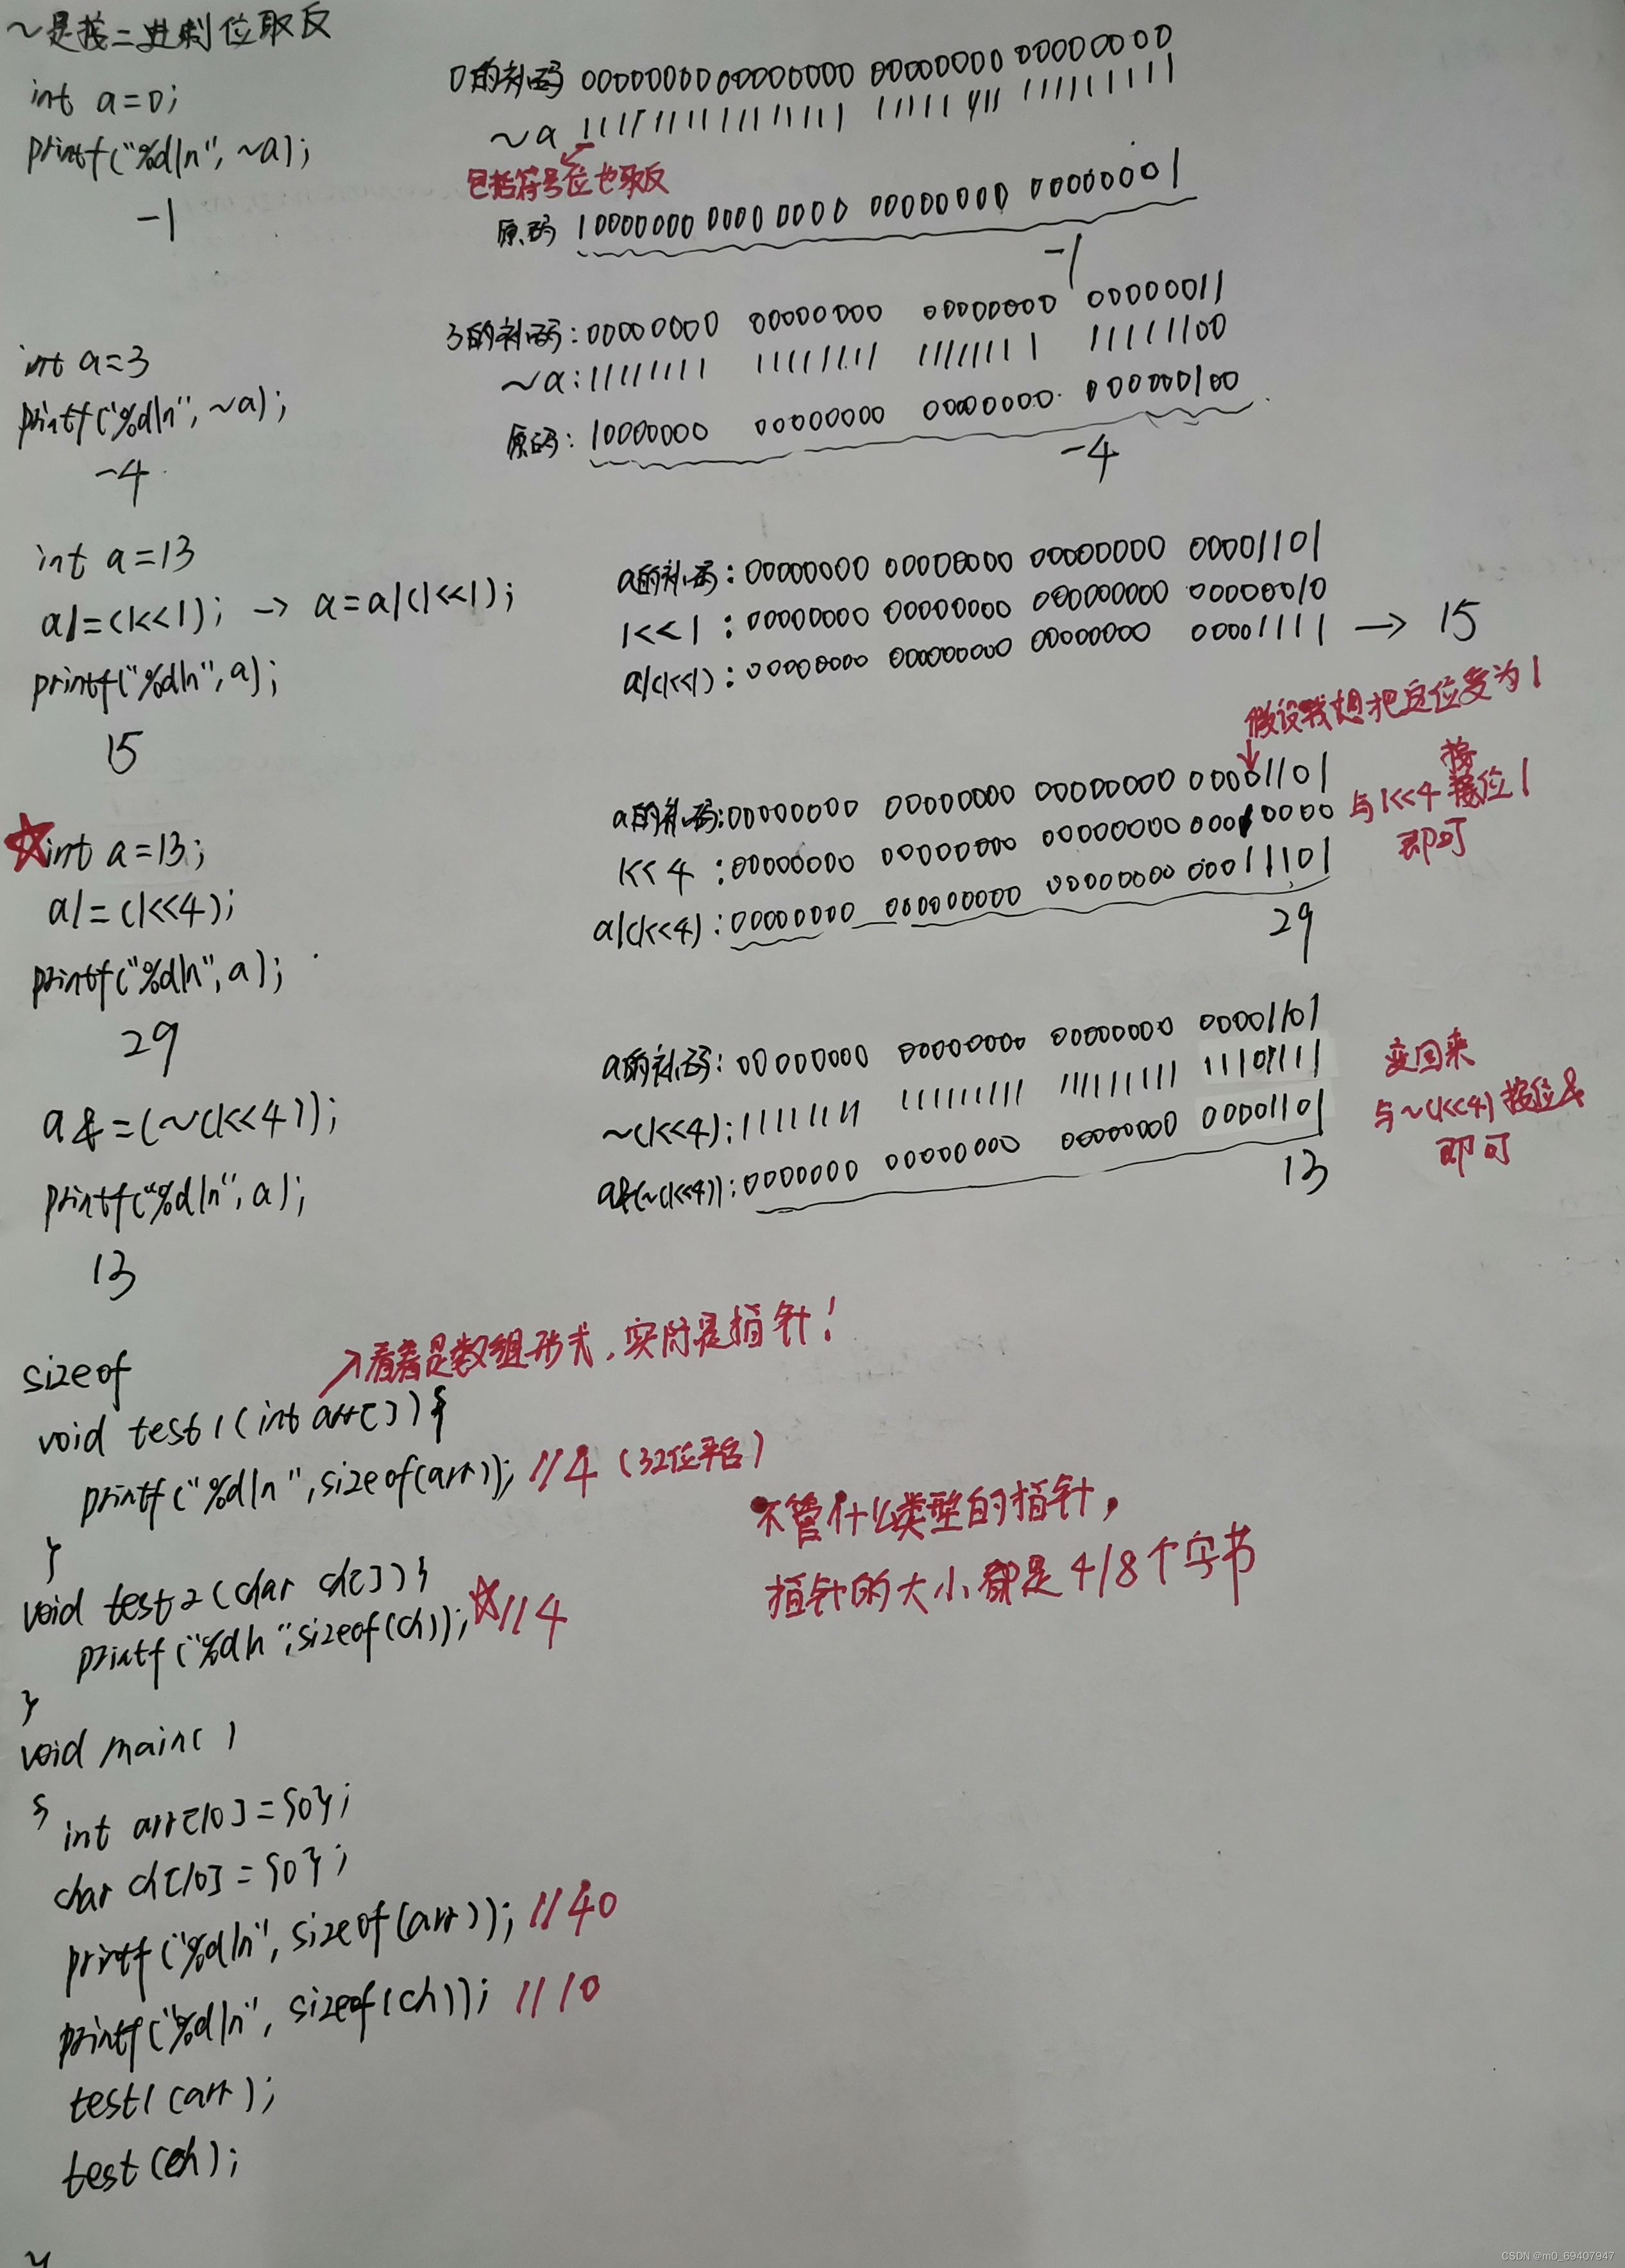 ~是按二进制位取反
int a=0;
printf("%d\n", ~a);
-1
0的补码 00000000 00000000 00000000 00000000
~a 11111111 11111111 11111111 11111111
包括符号位也取反
原码 10000000 00000000 00000000 00000001
-1
int a=3
printf("%d\n", ~a);
-4
3的补码: 00000000 00000000 00000000 00000011
~a: 11111111 11111111 11111111 11111100
原码: 10000000 00000000 00000000 000000100
-4
int a=13
a|=(1<<1); → a=a|(1<<1);
printf("%d\n", a);
15
a的补码: 00000000 00000000 00000000 00001101
1<<1: 00000000 00000000 000000000 00000010
a|(1<<1): 00000000 000000000 00000000 00001111 → 15
int a=13;
a|=(1<<4);
printf("%d\n", a);
29
假设我想把这位变为1
a的补码: 00000000 00000000 00000000 00001101
1<<4: 00000000 00000000 00000000 00010000
a|(1<<4): 00000000 000000000 00000000 00011101
29
与1<<4 按位|
即可
a&=(~(1<<4));
printf("%d\n", a);
13
a的补码: 00000000 00000000 00000000 00001101
~(1<<4): 11111111 111111111 111111111 11101111
a&(~(1<<4)): 0000000 00000000 00000000 00001101
13
变回来
与~(1<<4)按位&
即可
sizeof
→看着是数组形式,实际是指针!
void test1(int arr[]){
printf("%d\n",sizeof(arr)); //4 (32位平台)
}
不管什么类型的指针,
指针的大小都是4/8个字节
void test2(char ch[]){
printf("%d\n",sizeof(ch)); ☆//4
}
void main()
{
int arr[10]={0};
char ch[10]={0};
printf("%d\n", sizeof(arr)); //40
printf("%d\n", sizeof(ch)); //10
test1(arr);
test(ch);
}
CSDN @m0_69407947